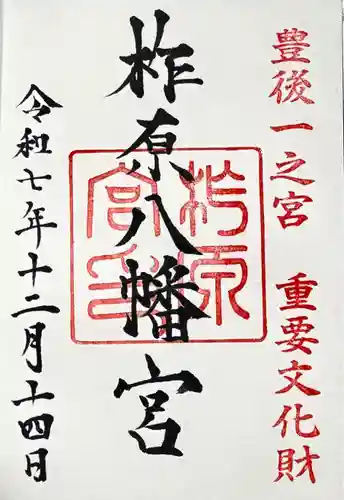 豊後一之宮　重要文化財
柞原八幡宮
柞原宮印
令和七年十二月十四日